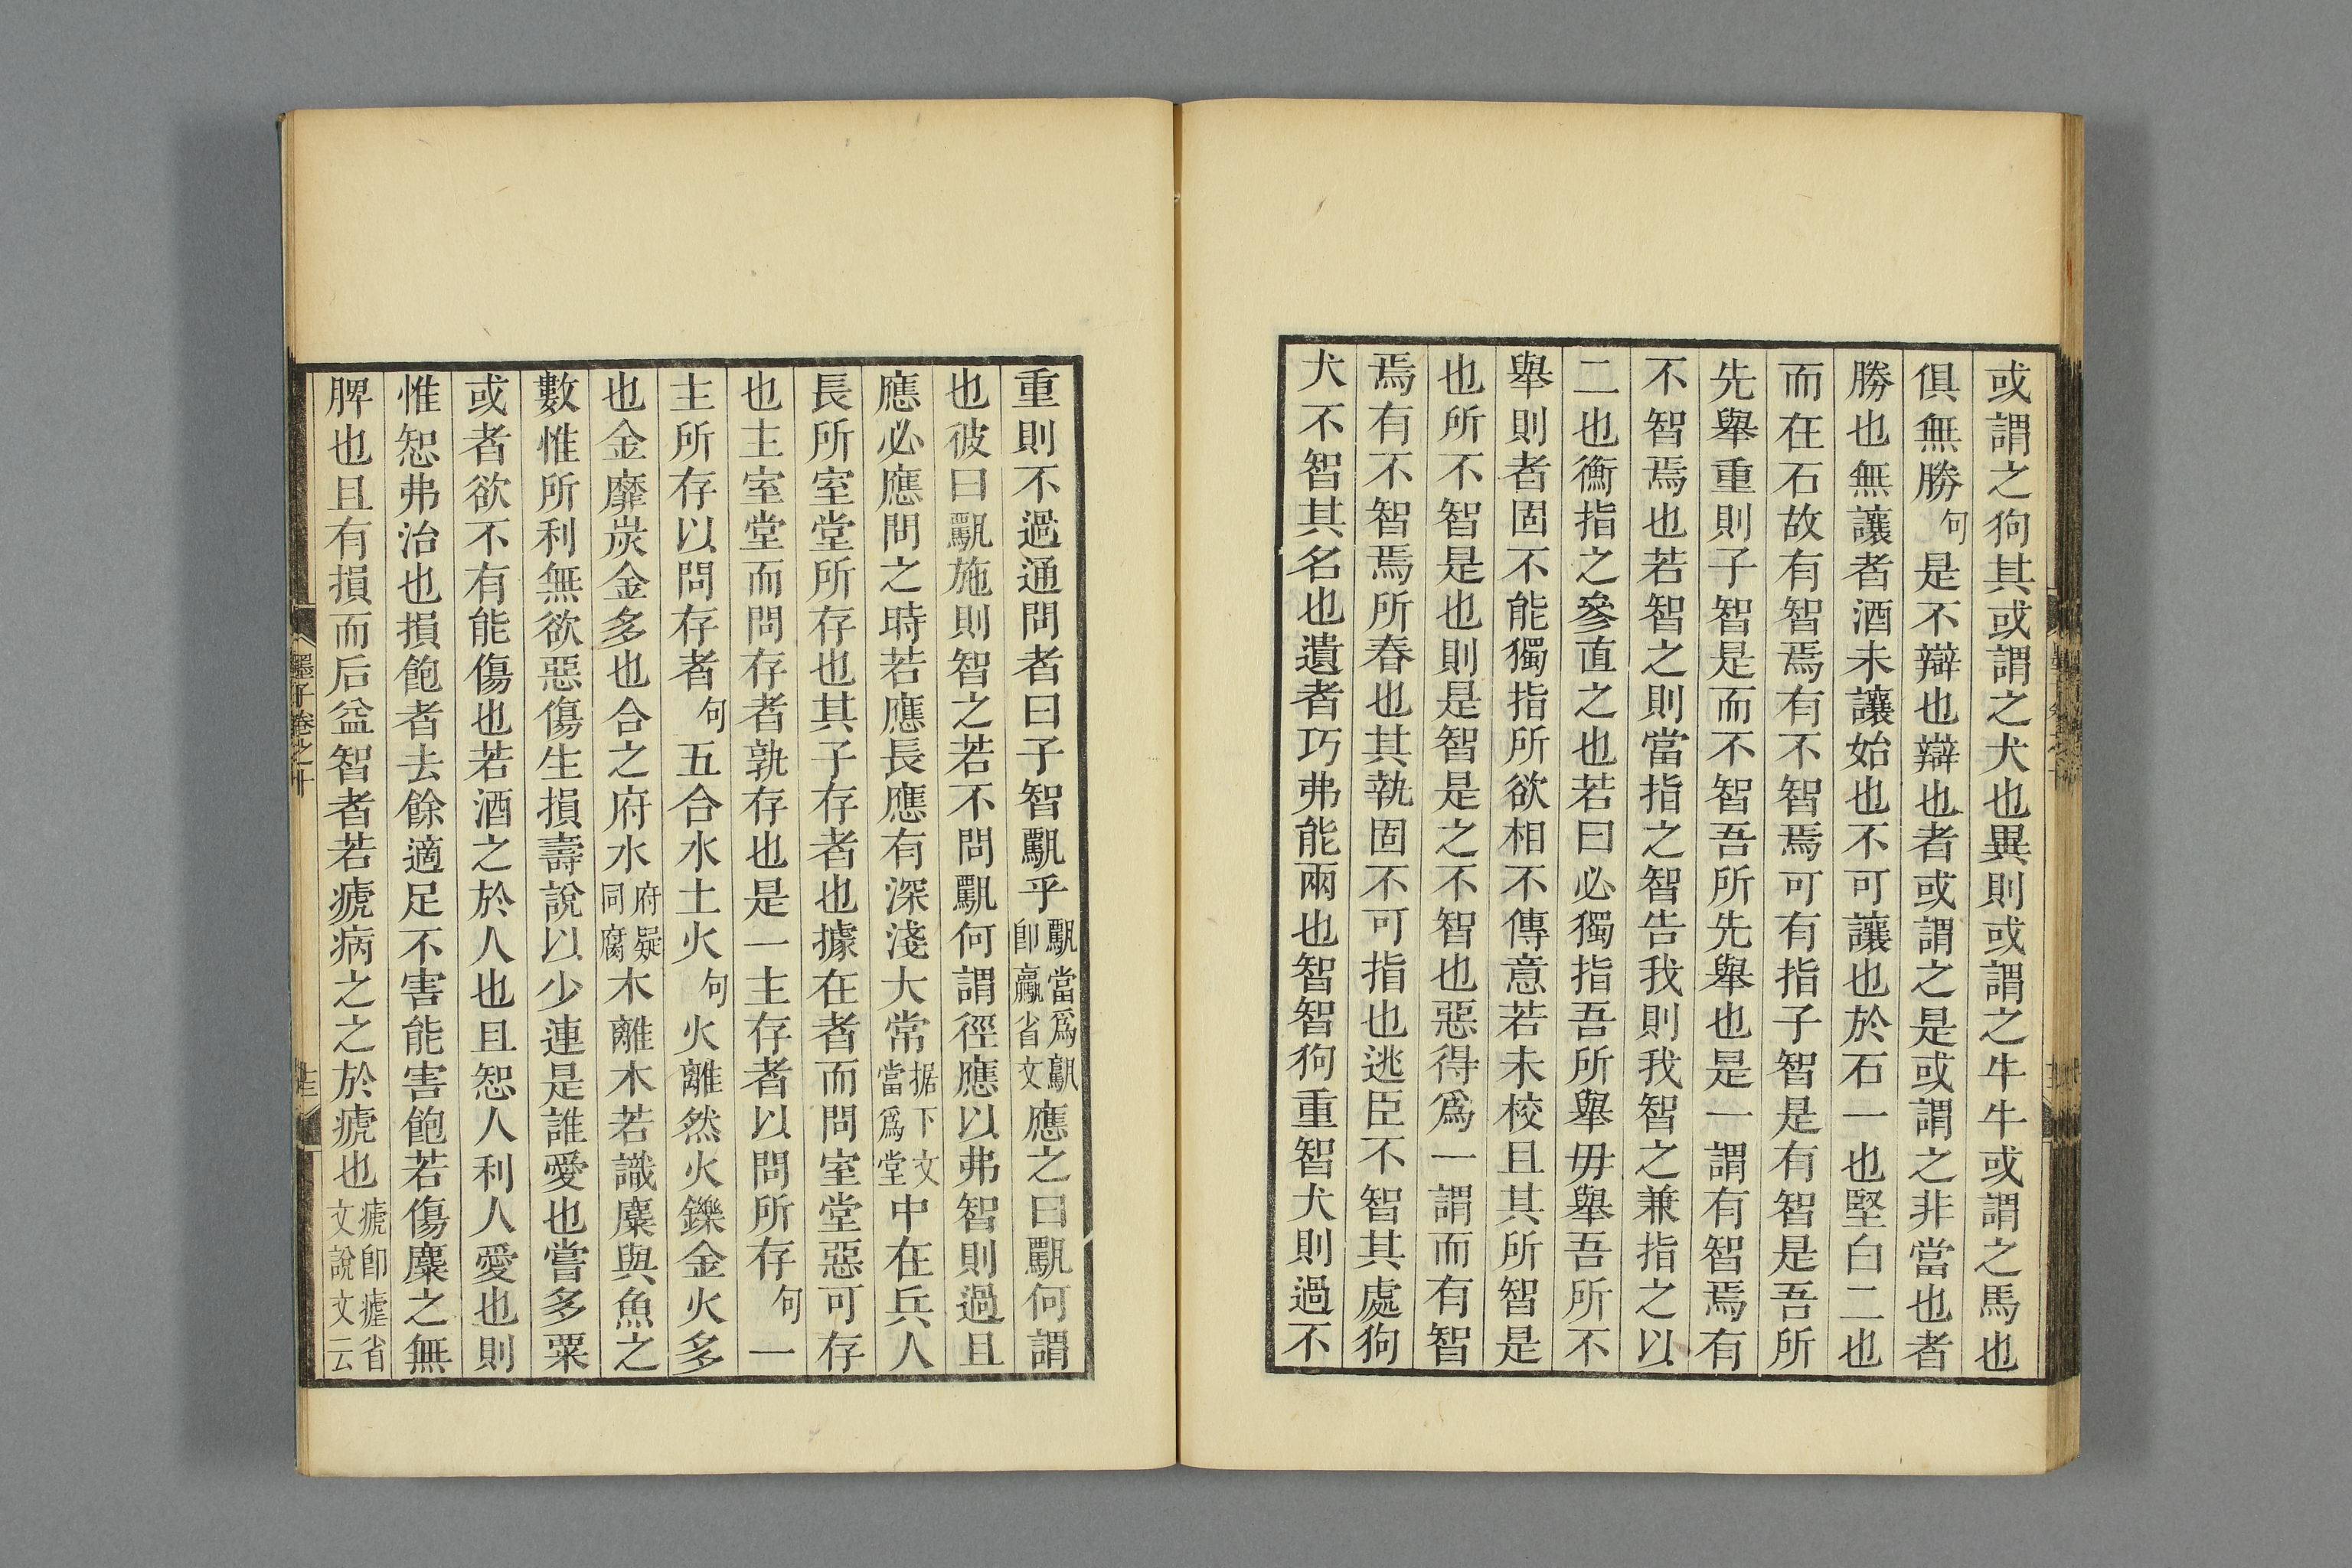 或謂之狗其或謂之犬也異則或謂之牛牛或謂之馬也
俱無勝句是不辯也辯也者或謂之是或謂之非當也者
勝也無讓者酒未讓始也不可讓也於石一也堅白二也
而在石故有智焉有不智焉可有指子智是有智是吾所
先舉重則子智是而不智吾所先舉也是一謂有智焉有
不智焉也若智之則當指之智告我則我智之兼指之以
二也衡指之參直之也若曰必獨指吾所舉毋舉吾所不
舉則者固不能獨指所欲相不傳意若未校且其所智是
也所不智是也則是智是之不智也惡得爲一謂而有智
焉有不智焉所春也其執固不可指也逃臣不智其處狗
犬不智其名也遺者巧弗能兩也智智狗重智犬則過不
重則不過通問者曰子智䮫乎䮫當爲䯁卽羸省文應之曰䮫何謂
也彼曰䮫施則智之若不問䮫何謂徑應以弗智則過且
應必應問之時若應長應有深淺大常据下文當爲堂中在兵人
長所室堂所存也其子存者也據在者而問室堂惡可存
也主室堂而問存者孰存也是一主存者以問所存句一
主所存以問存者句五合水土火句火離然火鑠金火多
也金靡炭金多也合之府水府疑同腐木離木若識麋與魚之
數惟所利無欲惡傷生損壽說以少連是誰愛也嘗多粟
或者欲不有能傷也若酒之於人也且恕人利人愛也則
惟恕弗治也損飽者去餘適足不害能害飽若傷麋之無
脾也且有損而后益智者若瘧病之之於瘧也瘧卽瘧省文說文云
墨子卷之十